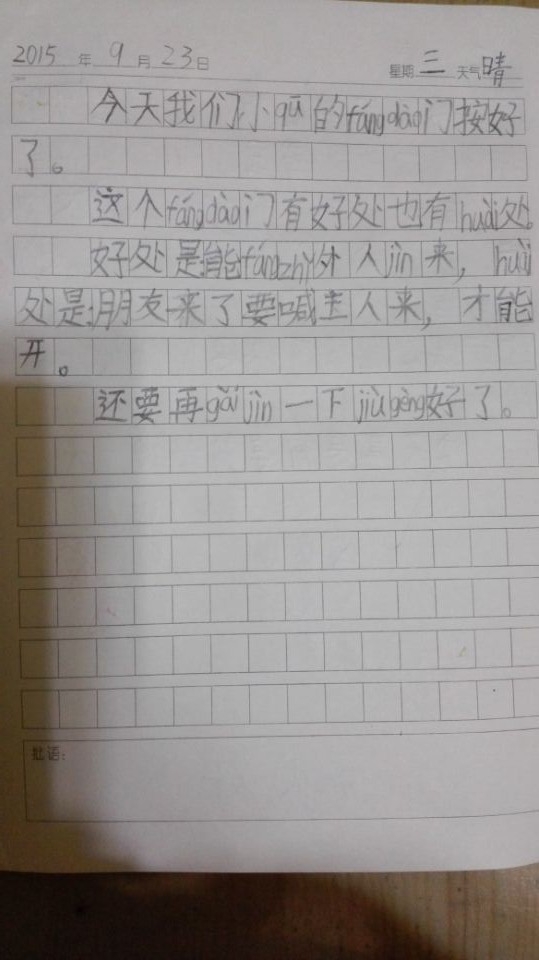 2015 年 9 月 23 日 星期 三 天气 晴
今天我们小qū的fángdào门按好
了。
这个fángdào門有好处也有huài处。
好处是能fángzhǐ外人jìn来，huài
处是朋友来了要喊主人来，才能
开。
还要再gǎijìn一下jiùgèng好了。
批语：